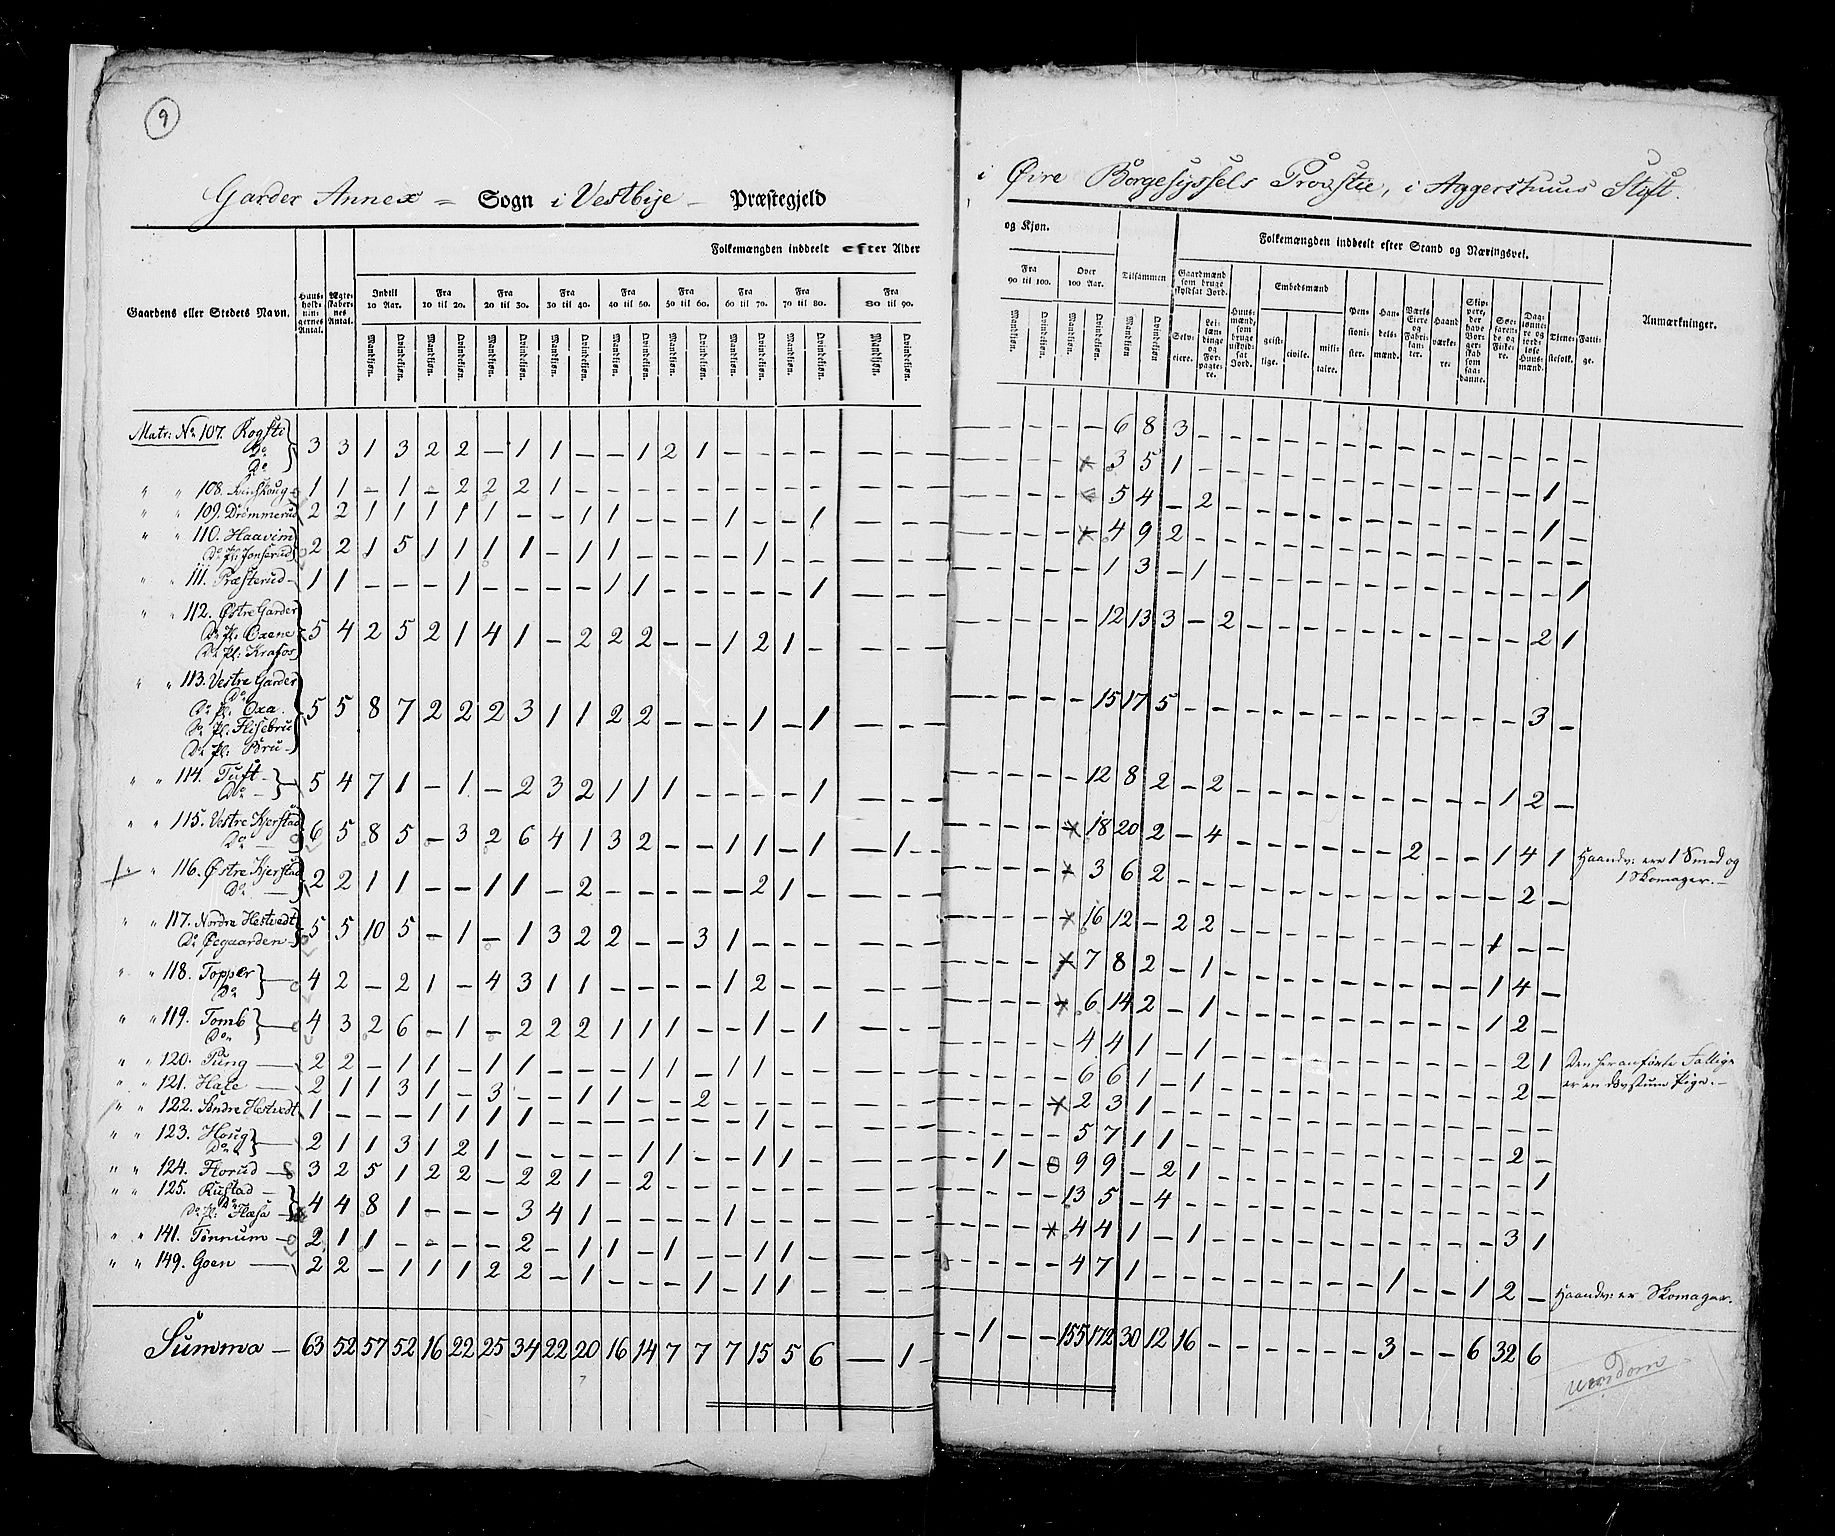 9
Garder Annex = Sogn i Vestbye – Præstegjeld
i Øvre Borgesyssels Provstie, i Aggershuus Stift.
Folkemængden inddeelt efter Alder
og Kjøn.
Folkemængden inddeelt efter Stand og Næringsvei.
Gaardens eller Stedets Navn.
Huus-holdnin-gernes Antal.
Ægte-skaber-nes Antal.
Indtil 10 Aar.
Fra 10 til 20.
Fra 20 til 30.
Fra 30 til 40.
Fra 40 til 50.
Fra 50 til 60.
Fra 60 til 70.
Fra 70 til 80.
Fra 80 til 90.
Fra 90 til 100.
Over 100 Aar.
Tilsammen
Mandkjøn. Qvindekjøn.
Gaardmænd som bruge skyldsat Jord.
Selv-eiere.
Lei-læn-dinge og For-pagte-re.
Huus-mænd, som bruge uskyld-sat Jord.
Embedsmænd
geist-lige.
civile.
mili-taire.
Pen-sioni-ster.
Han-dels-mænd.
Værks Eiere og Fabri-kan-ter.
Haand-værke-re.
Skip-pere, der have Bor-ger-skab som saa-danne.
Søe-farende og Fiske-re.
Dag-lønne-re og jord-løse Huus-mænd.
Tjene-stefolk.
Fatti-ge.
Anmærkninger.
Matr: No 107. Rogsti 3 3 1 3 2 2 – 1 1 – – 1 2 1 – – – – – – – – – – – 6 8 3 – – – – – – – – – – – – –
Do
Do
" " 108. Svinskoug 1 1 – 1 – 2 2 2 1 – – – – – – – – – – – – – – – 3 5 1 – – – – – – – – – – – 1 –
" " 109. Drømmerud 2 2 1 1 1 1 1 – – 1 1 – – – 1 – – 1 – – – – – – 5 4 – 2 – – – – – – – – – – – –
" " 110. Haavim 2 2 1 5 1 1 1 1 – 1 1 – – – – 1 – – – – – – – – 4 9 2 – – – – – – – – – – – 1 –
Do Pl: Jonserud
" " 111. Præsterud 1 1 – – – 1 – – – – 1 1 – – – – – 1 – – – – – – 1 3 – 1 – – – – – – – – – – – 1
" " 112. Østre Garder 5 4 2 5 2 1 4 1 – 2 2 2 – – 1 2 1 – – – – – – – 12 13 3 – 2 – – – – – – – – – 2 1
Do Pl: Oxene
Do Pl: Krafos
" " 113. Vestre Garder 5 5 8 7 2 2 2 3 1 1 2 2 – – – 1 – 1 – – – – – – 15 17 5 – – – – – – – – – – – 3 –
Do
Do Pl: Oxa.
Do Pl: Flisebru
Do Pl: Bru
" " 114. Tuft 5 4 7 1 – 1 – 2 3 2 1 1 1 – – – – 1 – – – – – – 12 8 2 – 2 – – – – – – – – 1 2 –
Do
" " 115. Vestre Kjerstad 6 5 8 5 – 3 2 6 4 1 3 2 – – 1 1 – 1 – 1 – – – – 18 20 2 – 4 – – – – – – 2 – – 1 4 1 Haandv: ere 1 Smed og
Do 1 Skomager.
" " 116. Østre Kjerstad 2 2 1 1 – – 1 1 – 2 – – – – – 2 1 – – – – – – – 3 6 2 – – – – – – – – – – – 2 –
Do
" " 117. Nordre Hestvedt 5 5 10 5 – 1 – 1 3 2 2 – – 3 1 – – – – – – – – – 16 12 – 2 2 – – – – – – – – 1 – –
Do Øegaarden
" " 118. Topper 4 2 – 2 1 – 4 3 1 1 – – – – 1 2 – – – – – – – – 7 8 2 – 1 – – – – – – – – 1 4 –
Do
" " 119. Tomb 4 3 2 6 – 1 – 2 2 2 1 1 1 – – 1 – 1 – – – – – – 6 14 2 – 1 – – – – – – – – 1 2 –
Do
" " 120. Pung 2 2 – 1 1 – 1 1 – – – 1 1 – 1 1 – – – – – – – – 4 4 1 – 1 – – – – – – – – – 2 1 Den her anførte Fattige
" " 121. Hale 2 1 1 3 1 – 3 – – 1 1 – – 2 – – – – – – – – – – 6 6 1 – 1 – – – – – – – – – 2 – er en døvstum Pige.
" " 122. Søndre Hestvedt 1 – – – 1 1 1 1 – – – – – – – 1 – – – – – – – – 2 3 1 – – – – – – – – – – – – –
" " 123. Houg 2 1 1 3 1 2 1 – – – – 1 1 – 1 1 – – – – – – – – 5 7 1 1 – – – – – – – – – – 2 –
Do
" " 124. Florud 3 2 5 1 2 2 – 2 2 1 – 2 – – – – – – – – – 1 – – 9 9 – 2 1 – – – – – – – – – – 1
" " 125. Rustad 4 4 8 1 – – – 3 4 1 – – – – 1 – – – – – – – – – 13 5 – 4 – – – – – – – – – – – –
Do Do Pl: Flæsa
" " 141. Tønnum 2 1 1 – – – – 2 – 1 1 – 1 – – 1 1 – – – – – – – 4 4 1 – 1 – – – – – – – – – 3 1
" " 149. Goen 2 2 – 1 1 1 2 2 – 1 – – – 1 – 1 1 – – – – – – – 4 7 1 – – – – – – – – 1 – – 1 2 – Haandv: er Skomager.
Summa – 63 52 57 52 16 22 25 34 22 20 16 14 7 7 7 15 5 6 – 1 – 1 – – 155 172 30 12 16 – – – – – – 3 – – 6 32 6